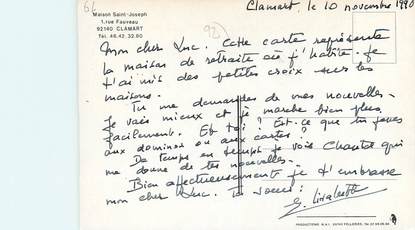 Maison Saint-Joseph
1, rue Fauveau
92140 CLAMART
Tél. 46.42.32.80
Clamart, le 10 novembre 1990
Mon cher Luc. Cette carte représente
la maison de retraite où j'habite. Je
t'ai mis des petites croix sur les
maisons.
Tu me demandes de mes nouvelles.
Je vais mieux et je marche bien plus
facilement. Et toi ? Est-ce que tu joues
aux dominos ou aux cartes ?
De temps en temps je vois Chantal qui
me donne de tes nouvelles.
Bien affectueusement je t'embrasse
mon cher Luc. Ta soeur :
PRODUCTIONS